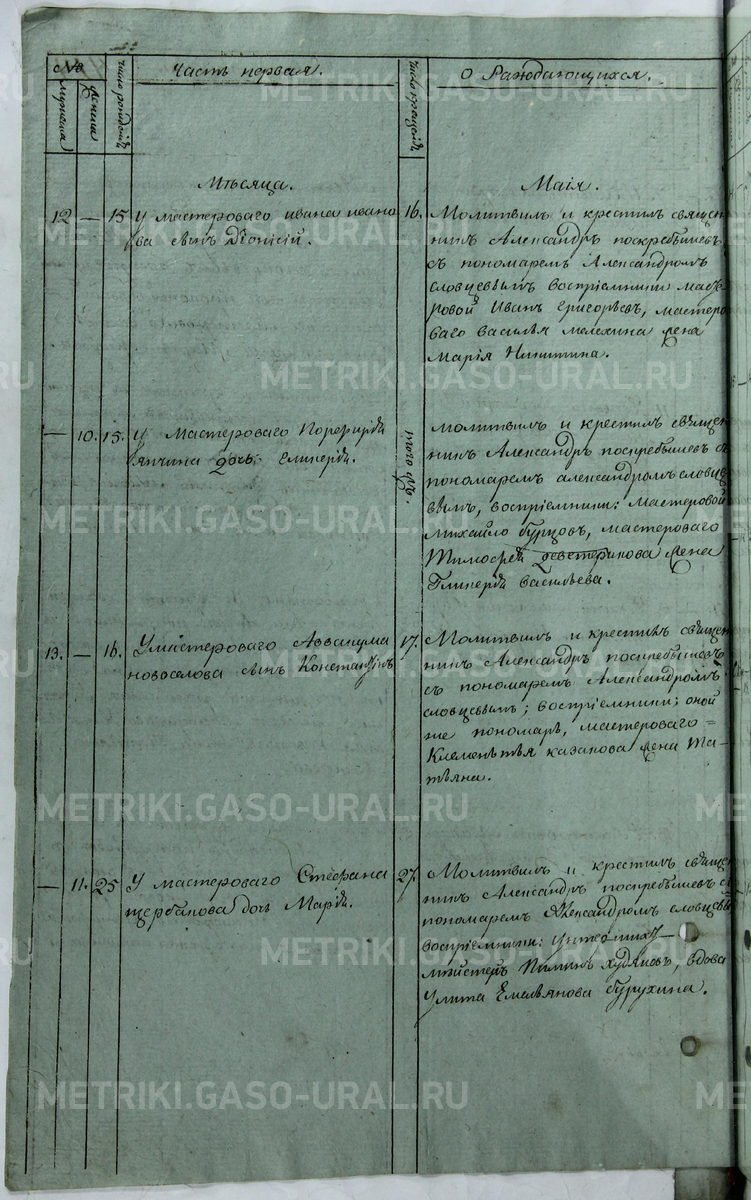 №
Часть первая.
О Раждающихся.
мужеска
женска
число рождений
число крещений
Мѣсяца.
Маія.
12 — 15 У мастероваго ивана ивано
ва сынъ Діонисій.
16. Молитвилъ и крестилъ священ
никъ Александръ поскребышевъ
съ пономаремъ Александромъ
словцевымъ воспріемники масте
ровой Иванъ Григорьевъ, мастеро
ваго василья мелехина жена
Марія Никитина.
— 10. 15. У Мастероваго Порфирія
дочь Гликерія.
того жъ.
молитвилъ и крестилъ священ
никъ Александръ поскребышевъ съ
пономаремъ александромъ словце
вымъ, воспріемники: Мастеровой
михайло бурцовъ, мастероваго
Тимофея жена
Гликерія васильева.
13. — 16. У мастероваго Аввакума
новоселова сынъ Константинъ
17. Молитвилъ и крестилъ священ
никъ Александръ поскребышевъ
съ пономаремъ Александромъ
словцевымъ; воспріемники; оной
же пономарь, мастероваго
Клементья казакова жена Та-
тьяна.
— 11. 25 У мастероваго Стефана
щербакова дочь Марія.
27. Молитвилъ и крестилъ священ
никъ Александръ поскребышевъ съ
пономаремъ Александромъ словцевы
воспріемники: унтеръ шихт-
мейстеръ Пименъ худяковъ, вдова
Улита Емельянова бурухина.
METRIKI.GASO-URAL.RU